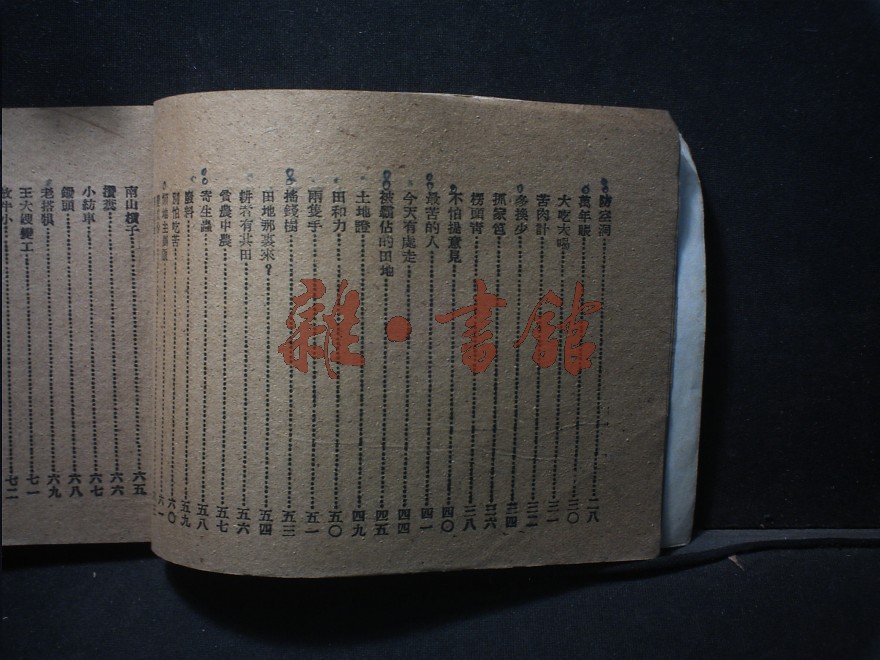 防空洞 二八
萬年賬 三〇
大吃大喝 三一
苦肉計 三二
多換少 三四
抓傢包 三六
楞頭青 三八
不怕提意見 四〇
最苦的人 四一
今天有處走 四四
被霸佔的田地 四五
土地證 四九
田和力 五〇
兩隻手 五一
搖錢樹 五三
田地那裏來? 五四
耕者有其田 五六
貧農中農 五七
寄生蟲 五八
廢料 五九
別怕吃苦 六〇
六一
南山橫子 六五
攢糞 六六
小紡車 六七
鋤頭 六八
老搭棋 六九
王大嫂變工 七一
七二
雜·書館